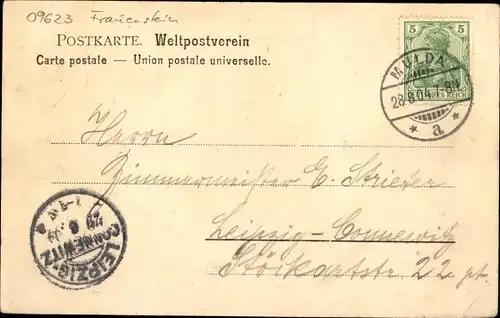 09623 Frauenstein
POSTKARTE. Weltpostverein
Carte postale — Union postale universelle.
5 5
MULDA
28.8.04.7-8N.
* a *
Herrn
Zimmermeister E. Strieter
Leipzig-Connewitz
Stöckartstr. 22 pt.
LEIPZIG-
CONNEWITZ